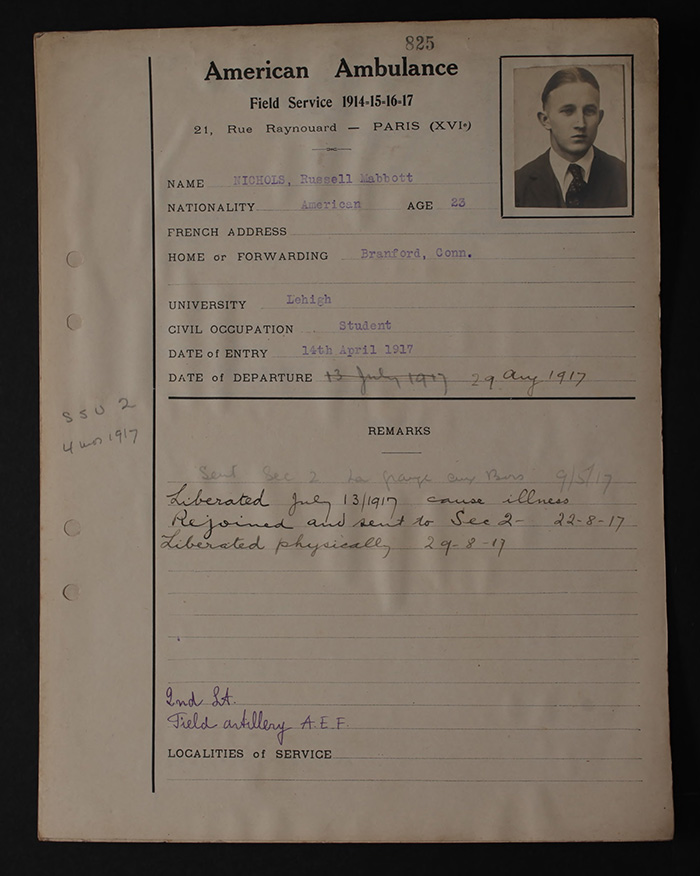 825
American Ambulance
Field Service 1914-15-16-17
21, Rue Raynouard — PARIS (XVIe)
NAME NICHOLS, Russell Mabbott
NATIONALITY American AGE 23
FRENCH ADDRESS
HOME or FORWARDING Branford, Conn.
UNIVERSITY Lehigh
CIVIL OCCUPATION Student
DATE of ENTRY 14th April 1917
DATE of DEPARTURE 13 July 1917 29 Aug 1917
SSU 2
4 mos 1917
REMARKS
Sent Sec 2 La Grange aux Bois 9/5/17
Liberated July 13/1917 cause illness
Rejoined and sent to Sec 2- 22-8-17
Liberated physically 29-8-17
2nd Lt.
Field artillery A.E.F.
LOCALITIES of SERVICE